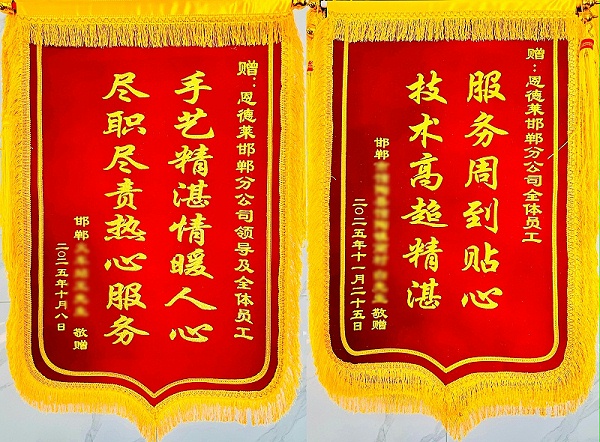 赠：恩德莱邯郸分公司领导及全体员工
手艺精湛情暖人心
尽职尽责热心服务
邯郸 敬赠
二〇二五年十月八日
赠：恩德莱邯郸分公司全体员工
服务周到贴心
技术高超精湛
邯郸 敬赠
二〇二五年十一月二十五日